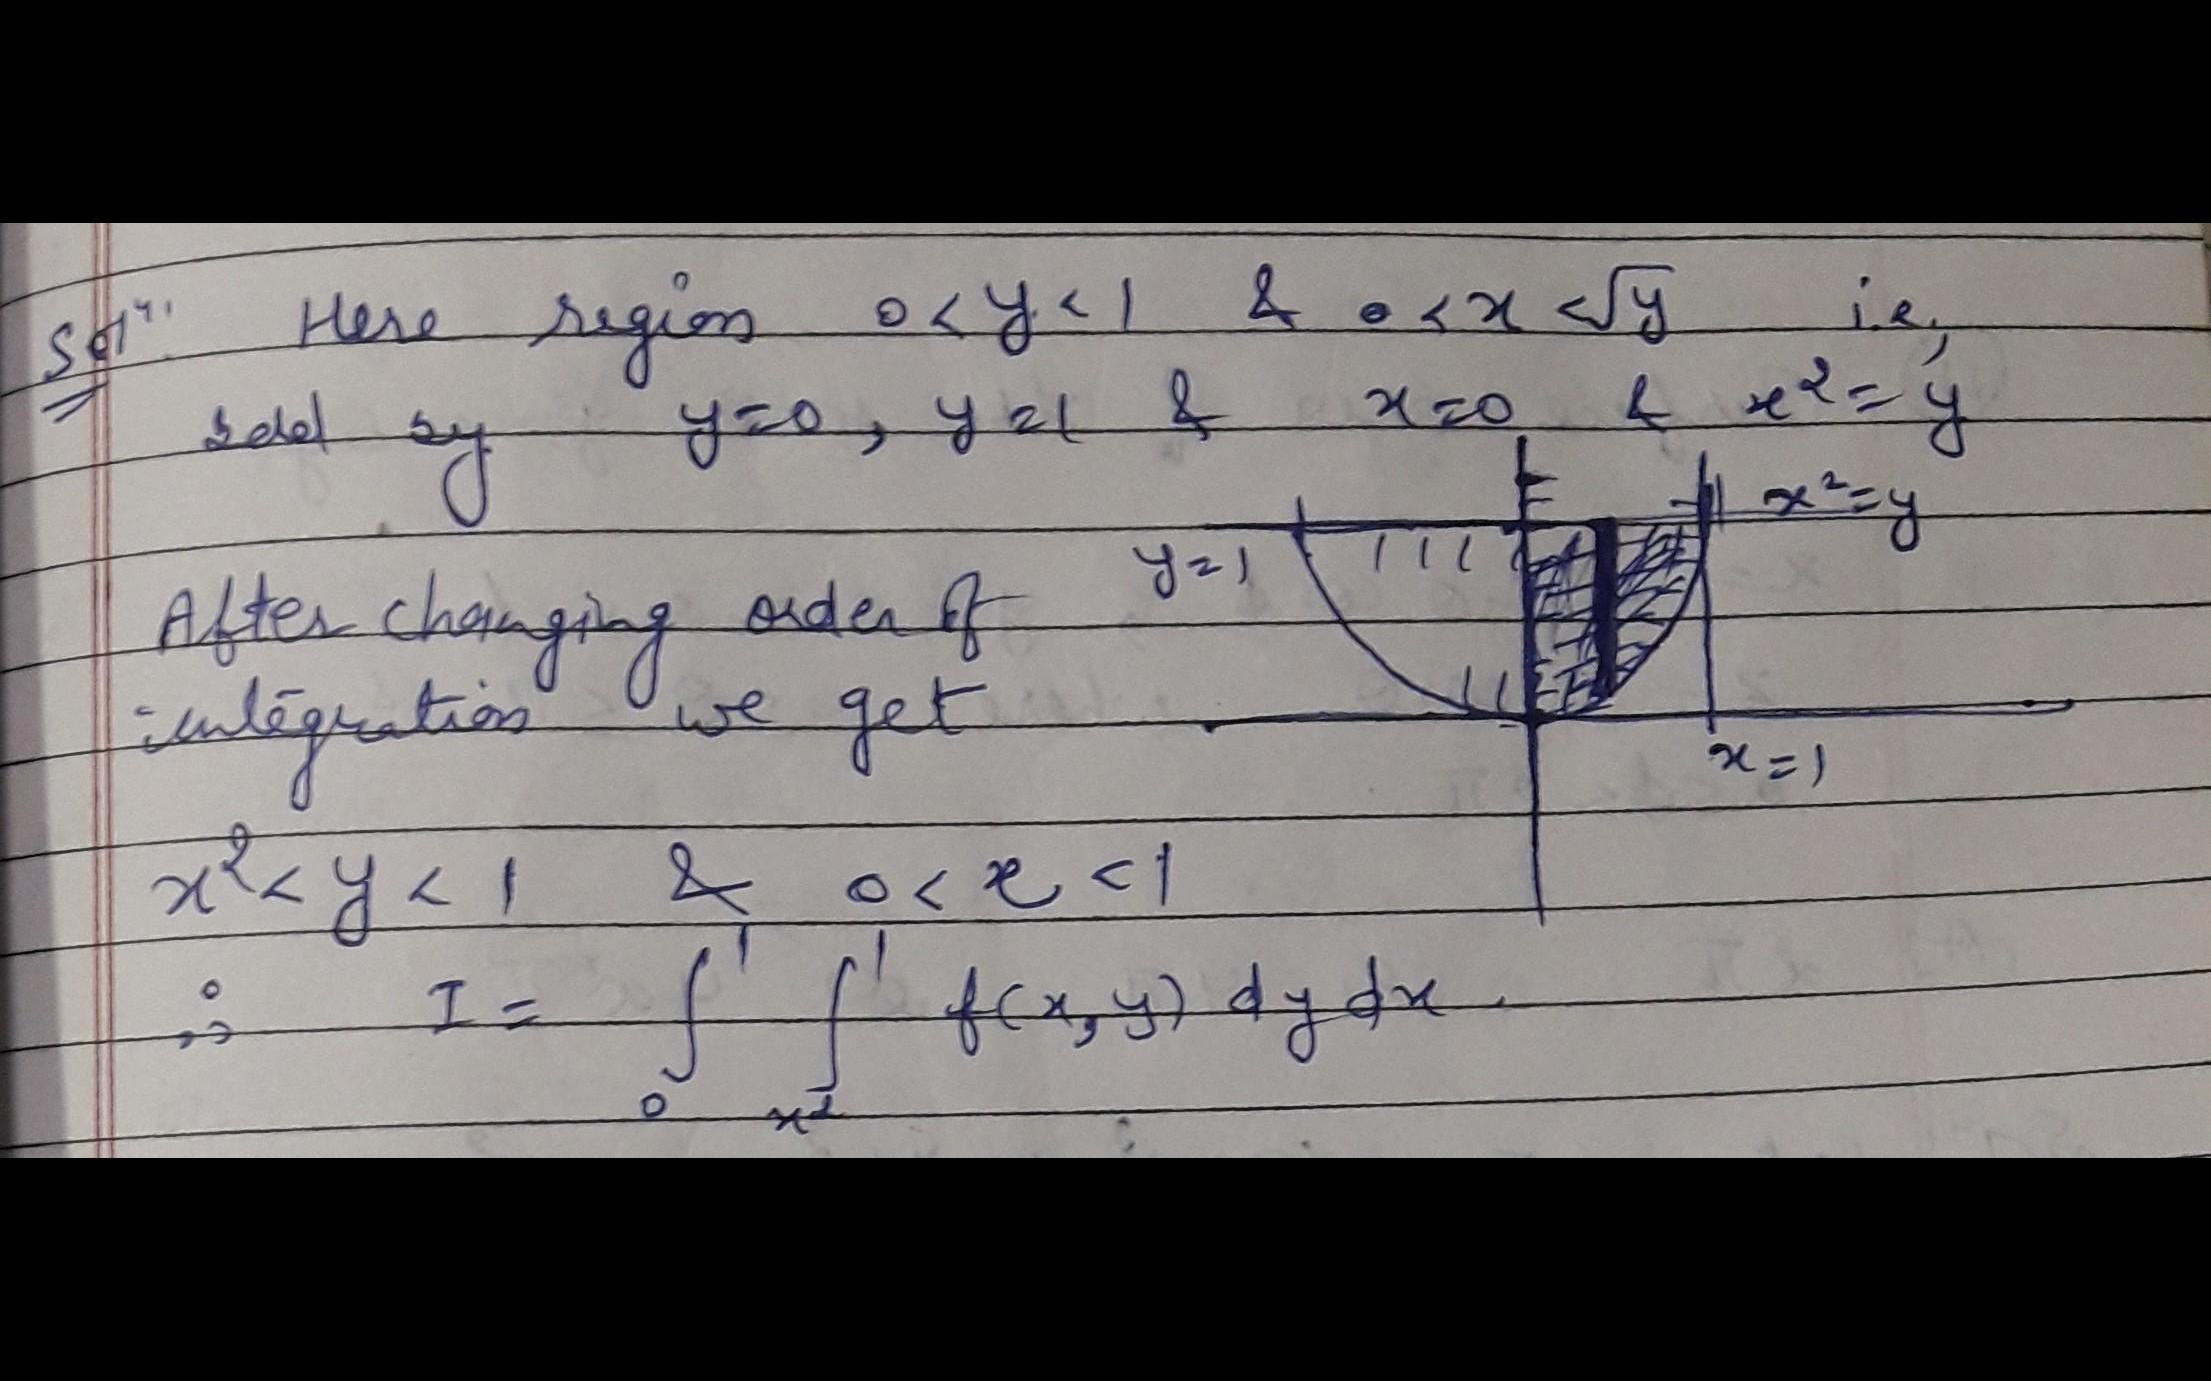 Solⁿ. Here region 0 < y < 1 & 0 < x < √y i.e,
bdd by y=0, y=1 & x=0 & x² = y
x² = y
y=1
After changing order of
integration we get
x=1
x² < y < 1 & 0 < x < 1
∴ I = ∫₀¹ ∫ₓ²¹ f(x,y) dy dx.